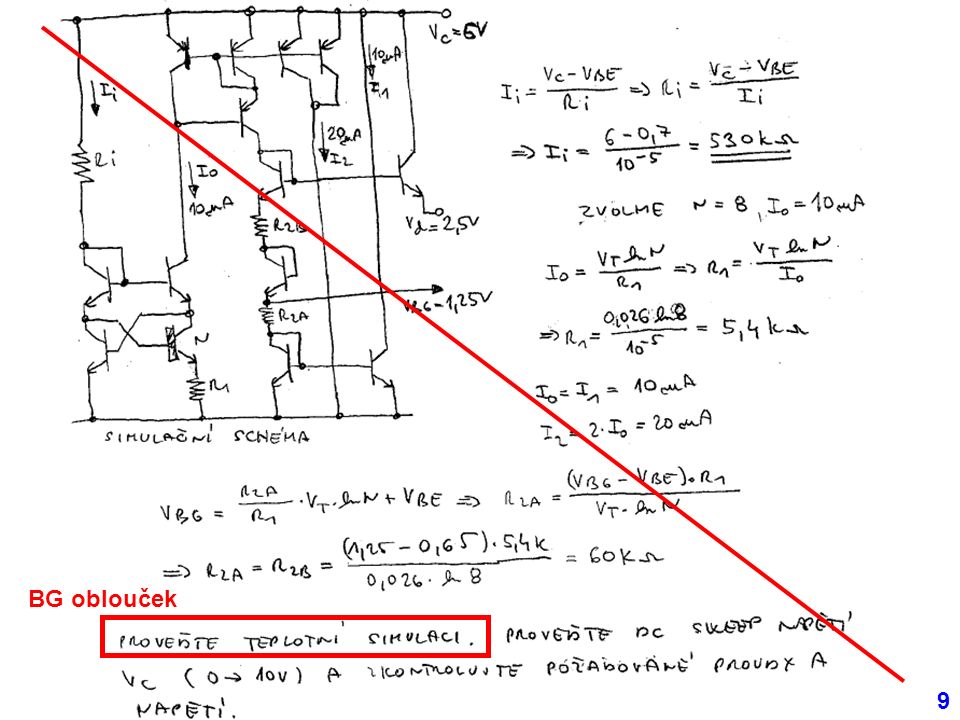 Vc=6V
Ii
Ri
I0
10μA
10μA
I1
20μA
I2
R2B
Vd=2,5V
VBG=1,25V
R2A
N
R1
SIMULAČNÍ SCHÉMA
Ii = (Vc-VBE)/Ri => Ri = (Vc-VBE)/Ii
=> Ii = (6-0,7)/10^-5 = 530kΩ
ZVOLME N=8, I0=10μA
I0 = (VT ln N)/R1 => R1 = (VT ln N)/I0
=> R1 = (0,026 ln 8)/10^-5 = 5,4kΩ
I0=I1=10μA
I2=2·I0=20μA
VBG = R2A/R1 · VT·ln N + VBE => R2A = ((VBG-VBE)·R1)/(VT·ln N)
=> R2A = R2B = ((1,25-0,65)·5,4k)/(0,026·ln 8) = 60kΩ
BG oblouček
PROVEĎTE TEPLOTNÍ SIMULACI. PROVEĎTE DC SWEEP NAPĚTÍ
Vc (0→10V) A ZKONTROLUJTE POŽADOVANÉ PROUDY A
NAPĚTÍ.
9